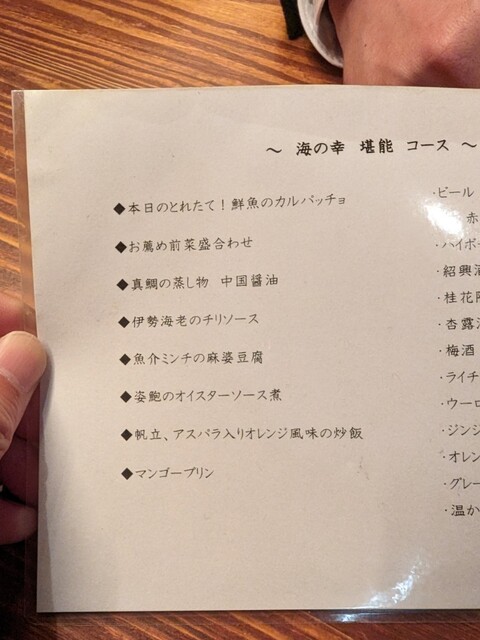 ～ 海の幸 堪能 コース ～
◆本日のとれたて！鮮魚のカルパッチョ
◆お薦め前菜盛合わせ
◆真鯛の蒸し物 中国醤油
◆伊勢海老のチリソース
◆魚介ミンチの麻婆豆腐
◆姿鮑のオイスターソース煮
◆帆立、アスパラ入りオレンジ風味の炒飯
◆マンゴープリン
・ビール
赤
・ハイボー
・紹興酒
・桂花陳
・杏露酒
・梅酒
・ライチ
・ウーロ
・ジンジ
・オレン
・グレー
・温か